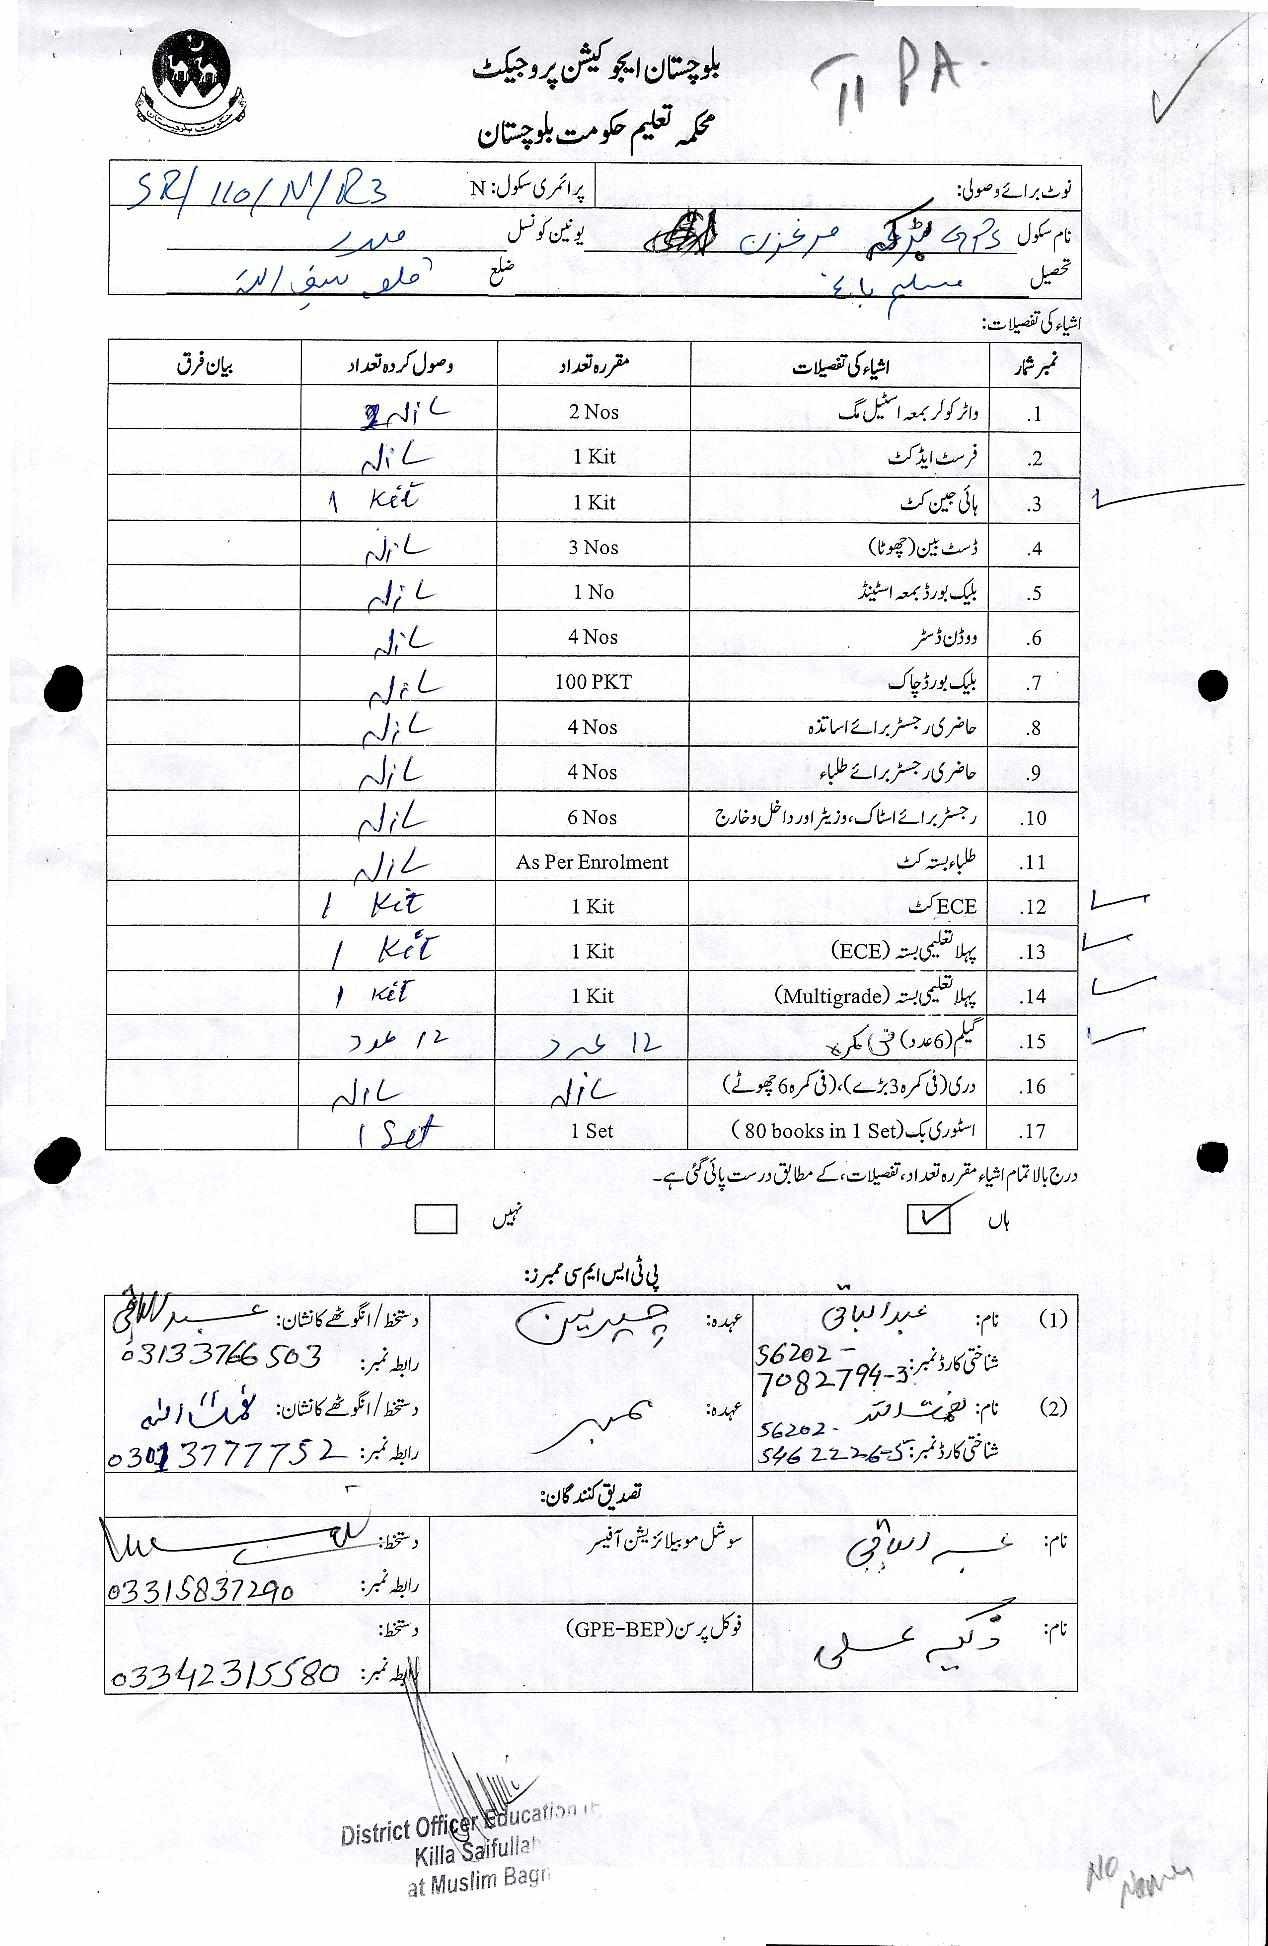 بلوچستان ایجوکیشن پروجیکٹ
محکمہ تعلیم حکومت بلوچستان
TIPA.
نوٹ برائے وصولی: پرائمری سکول: N SR/110/N/R3
نام سکول GPS مرغزن یونین کونسل
تحصیل مسلم باغ ضلع قلعہ سیف اللہ
اشیاء کی تفصیلات:
نمبر شمار اشیاء کی تفصیلات مقررہ تعداد وصول کردہ تعداد بیان فرق
1. واٹر کولر بمعہ اسٹیل مگ 2 Nos Nil
2. فرسٹ ایڈ کٹ 1 Kit Nil
3. ہائی جین کٹ 1 Kit 1 Kit
4. ڈسٹ بین (چھوٹا) 3 Nos Nil
5. بلیک بورڈ بمعہ اسٹینڈ 1 No Nil
6. ووڈن ڈسٹر 4 Nos Nil
7. بلیک بورڈ چاک 100 PKT Nil
8. حاضری رجسٹر برائے اساتذہ 4 Nos Nil
9. حاضری رجسٹر برائے طلباء 4 Nos Nil
10. رجسٹر برائے اسٹاک، وزیٹر اور داخل و خارج 6 Nos Nil
11. طلباء بستہ کٹ As Per Enrolment Nil
12. ECE کٹ 1 Kit 1 Kit
13. پہلا تعلیمی بستہ (ECE) 1 Kit 1 Kit
14. پہلا تعلیمی بستہ (Multigrade) 1 Kit 1 Kit
15. گیلم (6 عدد) فی کمرہ 12 عدد 12 عدد
16. دری (فی کمرہ 3 بڑے)، (فی کمرہ 6 چھوٹے) Nil Nil
17. اسٹوری بک (80 books in 1 Set) 1 Set 1 Set
درج بالا تمام اشیاء مقررہ تعداد، تفصیلات، کے مطابق درست پائی گئی ہے۔
ہاں نہیں
پی ٹی ایس ایم سی ممبرز:
(1) نام: عبدالباقی عہدہ: چیرمین دستخط/انگوٹھے کا نشان: عبدالباقی
شناختی کارڈ نمبر: 56202-7082794-3 رابطہ نمبر: 03133766503
(2) نام: نعمت اللہ عہدہ: ممبر دستخط/انگوٹھے کا نشان: نعمت اللہ
شناختی کارڈ نمبر: 56202-5462226-5 رابطہ نمبر: 03013777752
تصدیق کنندگان:
نام: عبدالباقی سوشل موبیلائزیشن آفیسر دستخط:
رابطہ نمبر: 03315837290
نام: ذکیہ علی فوکل پرسن (GPE-BEP) دستخط:
رابطہ نمبر: 03342315580
District Officer Education
Killa Saifullah
at Muslim Bagh
No